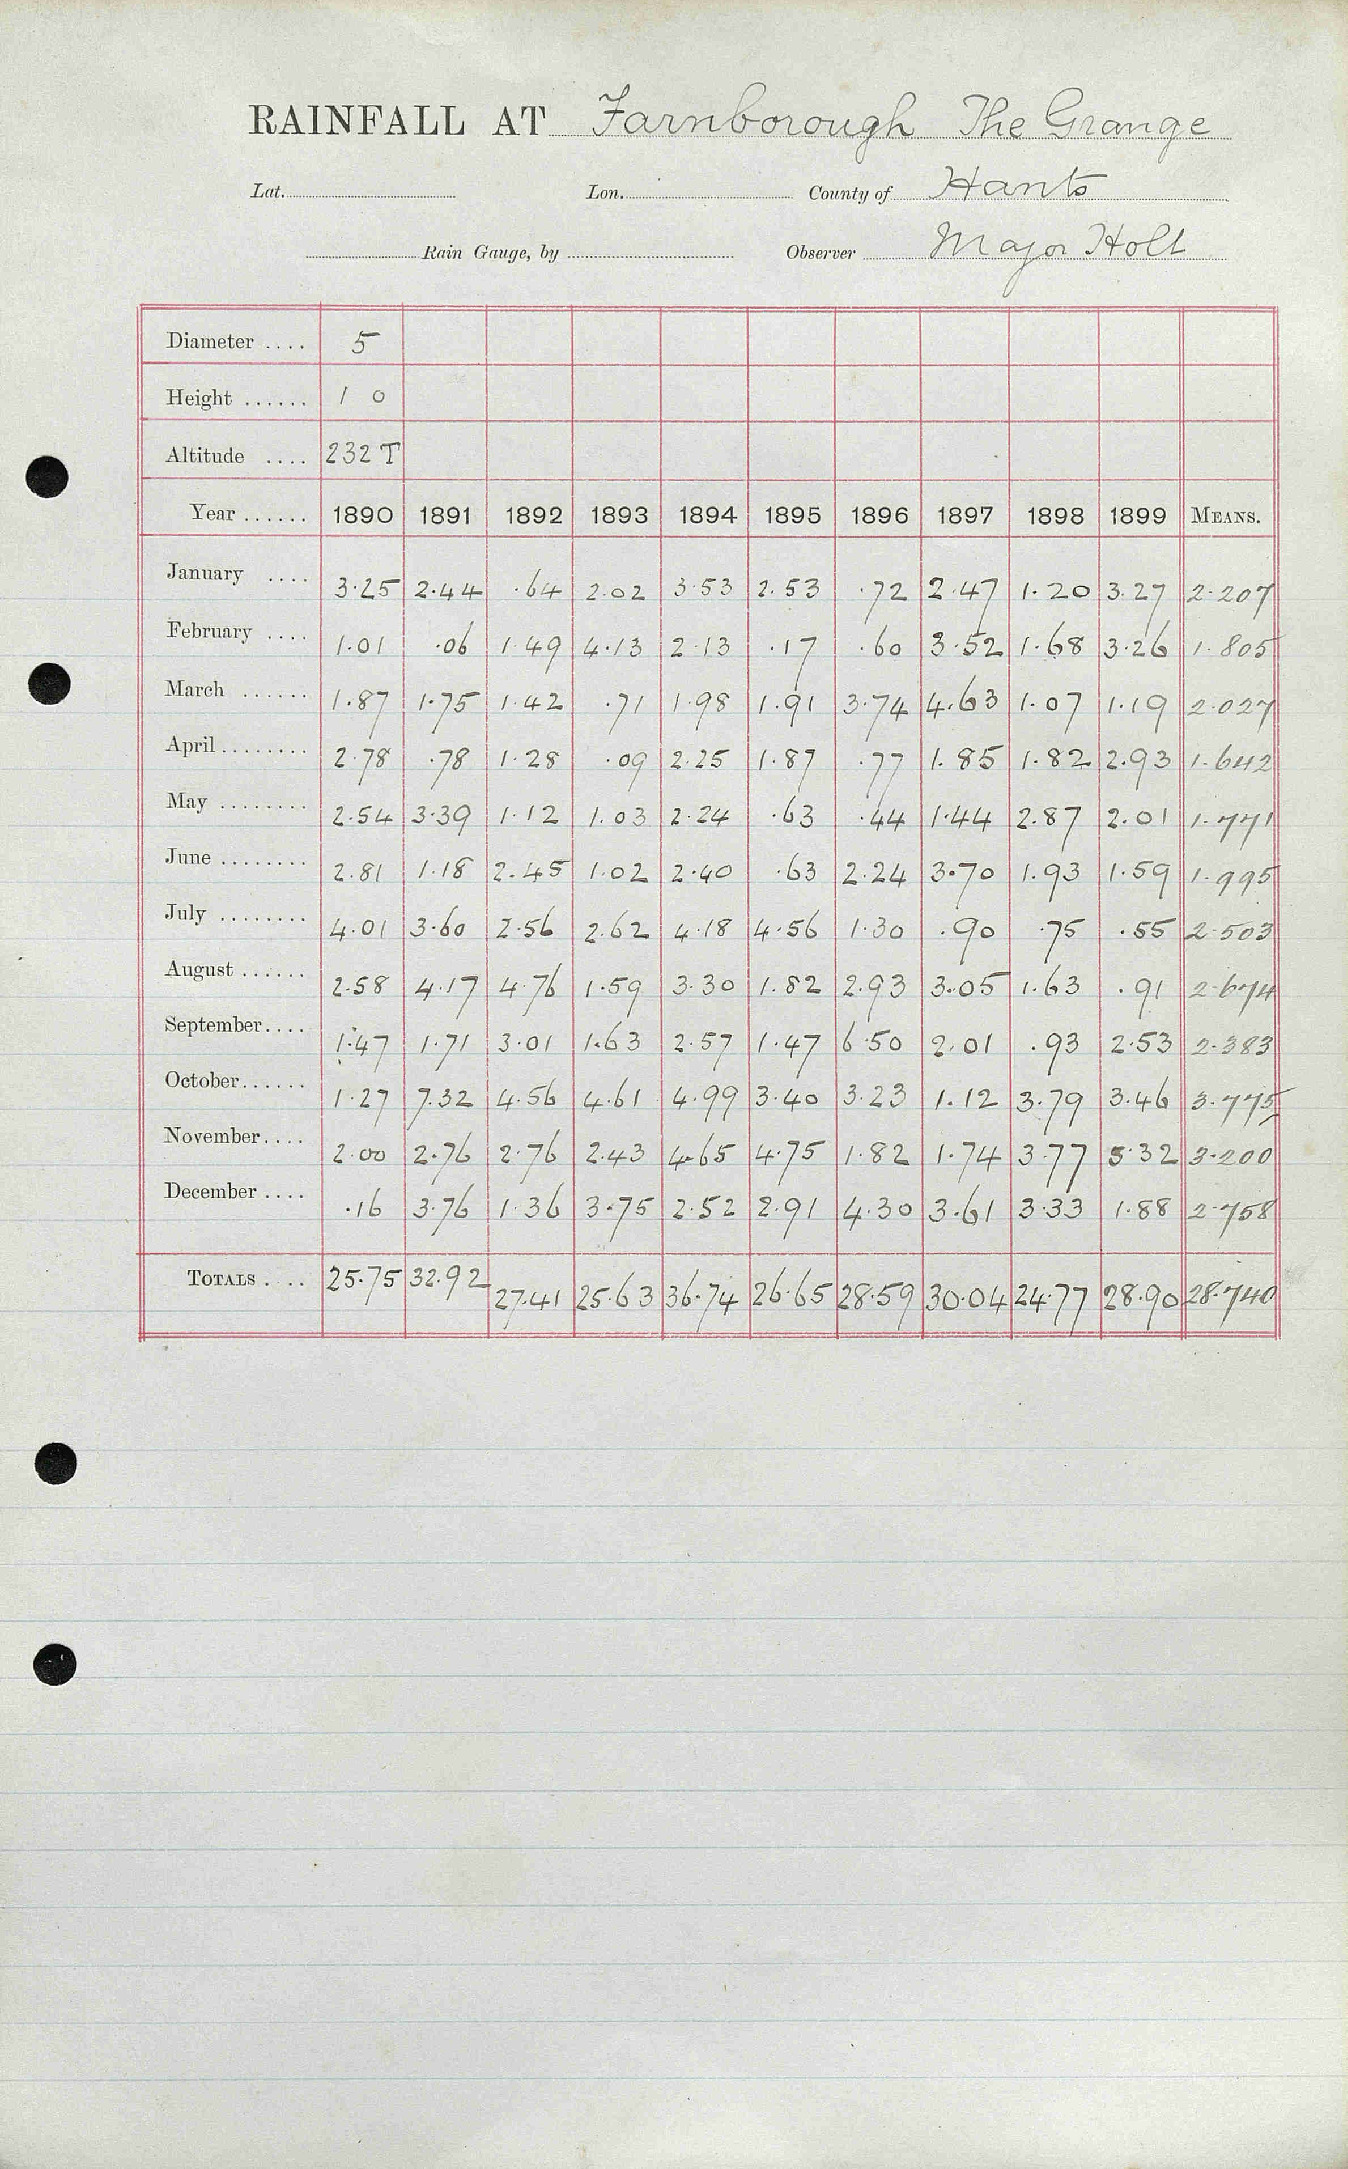 RAINFALL AT Farnborough The Grange
Lat. Lon. County of Hants
Rain Gauge, by Observer Major Holt
Diameter .... 5
Height ...... 1 0
Altitude .... 232 T
Year ...... 1890 1891 1892 1893 1894 1895 1896 1897 1898 1899 MEANS.
January .... 3.25 2.44 .64 2.02 3.53 2.53 .72 2.47 1.20 3.27 2.207
February .... 1.01 .06 1.49 4.13 2.13 .17 .60 3.52 1.68 3.26 1.805
March ...... 1.87 1.75 1.42 .71 1.98 1.91 3.74 4.63 1.07 1.19 2.027
April ........ 2.78 .78 1.28 .09 2.25 1.87 .77 1.85 1.82 2.93 1.642
May ........ 2.54 3.39 1.12 1.03 2.24 .63 .44 1.44 2.87 2.01 1.771
June ........ 2.81 1.18 2.45 1.02 2.40 .63 2.24 3.70 1.93 1.59 1.995
July ........ 4.01 3.60 2.56 2.62 4.18 4.56 1.30 .90 .75 .55 2.503
August ...... 2.58 4.17 4.76 1.59 3.30 1.82 2.93 3.05 1.63 .91 2.674
September.... 1.47 1.71 3.01 1.63 2.57 1.47 6.50 2.01 .93 2.53 2.383
October...... 1.27 7.32 4.56 4.61 4.99 3.40 3.23 1.12 3.79 3.46 3.775
November.... 2.00 2.76 2.76 2.43 4.65 4.75 1.82 1.74 3.77 5.32 3.200
December .... .16 3.76 1.36 3.75 2.52 2.91 4.30 3.61 3.33 1.88 2.758
TOTALS .... 25.75 32.92 27.41 25.63 36.74 26.65 28.59 30.04 24.77 28.90 28.740